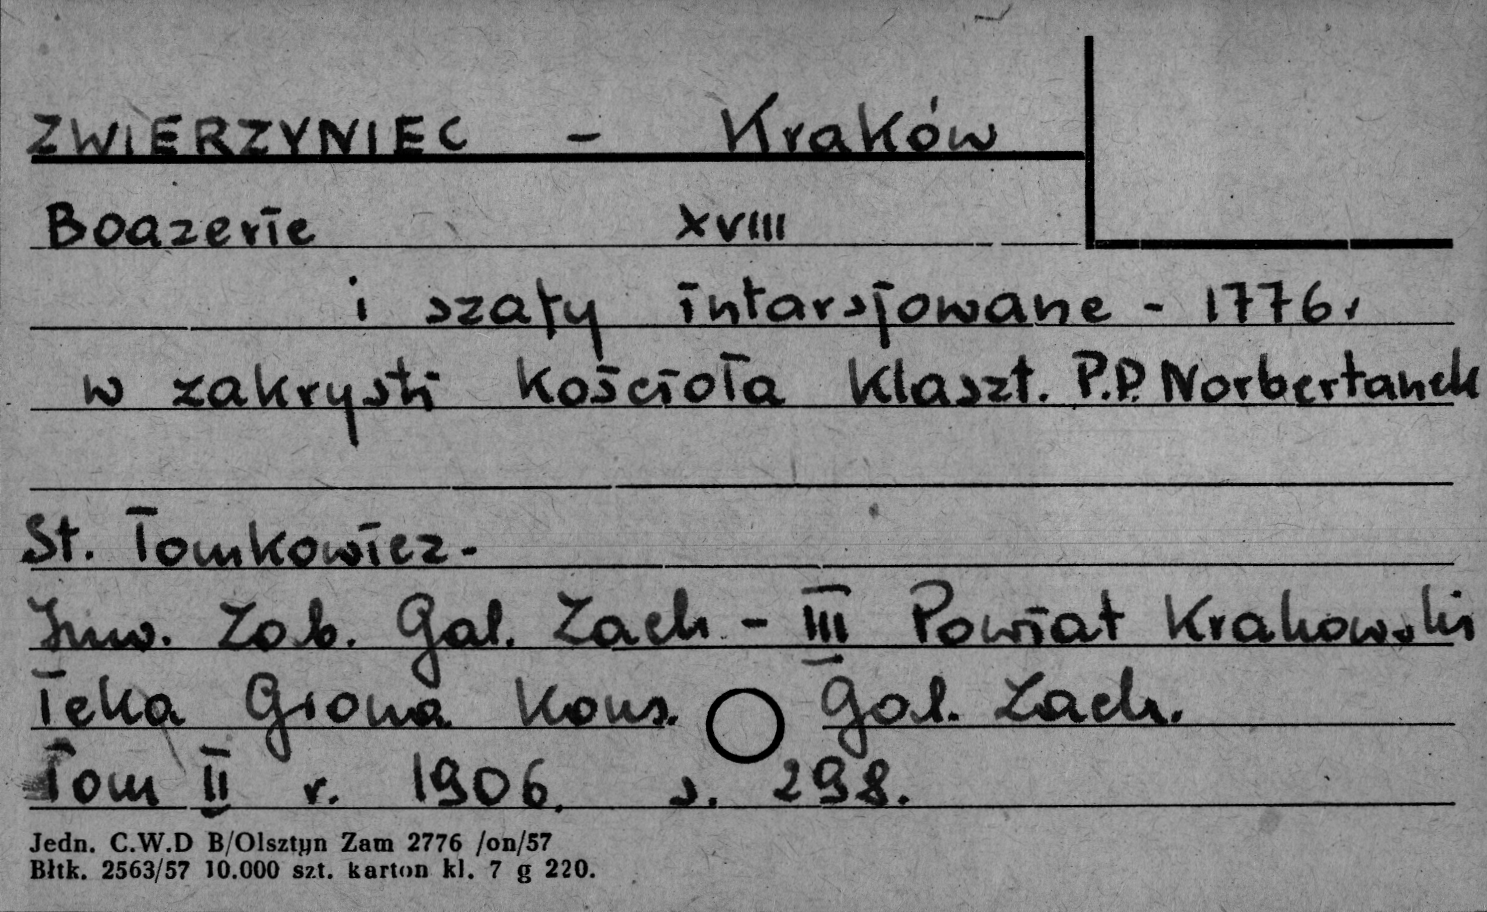 ZWIERZYNIEC - Kraków
Boazerie XVIII
i szafy intarsjowane - 1776r
w zakrysti kościoła klaszt. P.P. Norbertanek
St. Tomkowicz -
Inw. Zab. Gal. Zach - III Powiat Krakowski
Teka Grona Kons. Gal. Zach.
Tom II r. 1906. s. 298.
Jedn. C.W.D B/Olsztyn Zam 2776 /on/57
Błtk. 2563/57 10.000 szt. karton kl. 7 g 220.